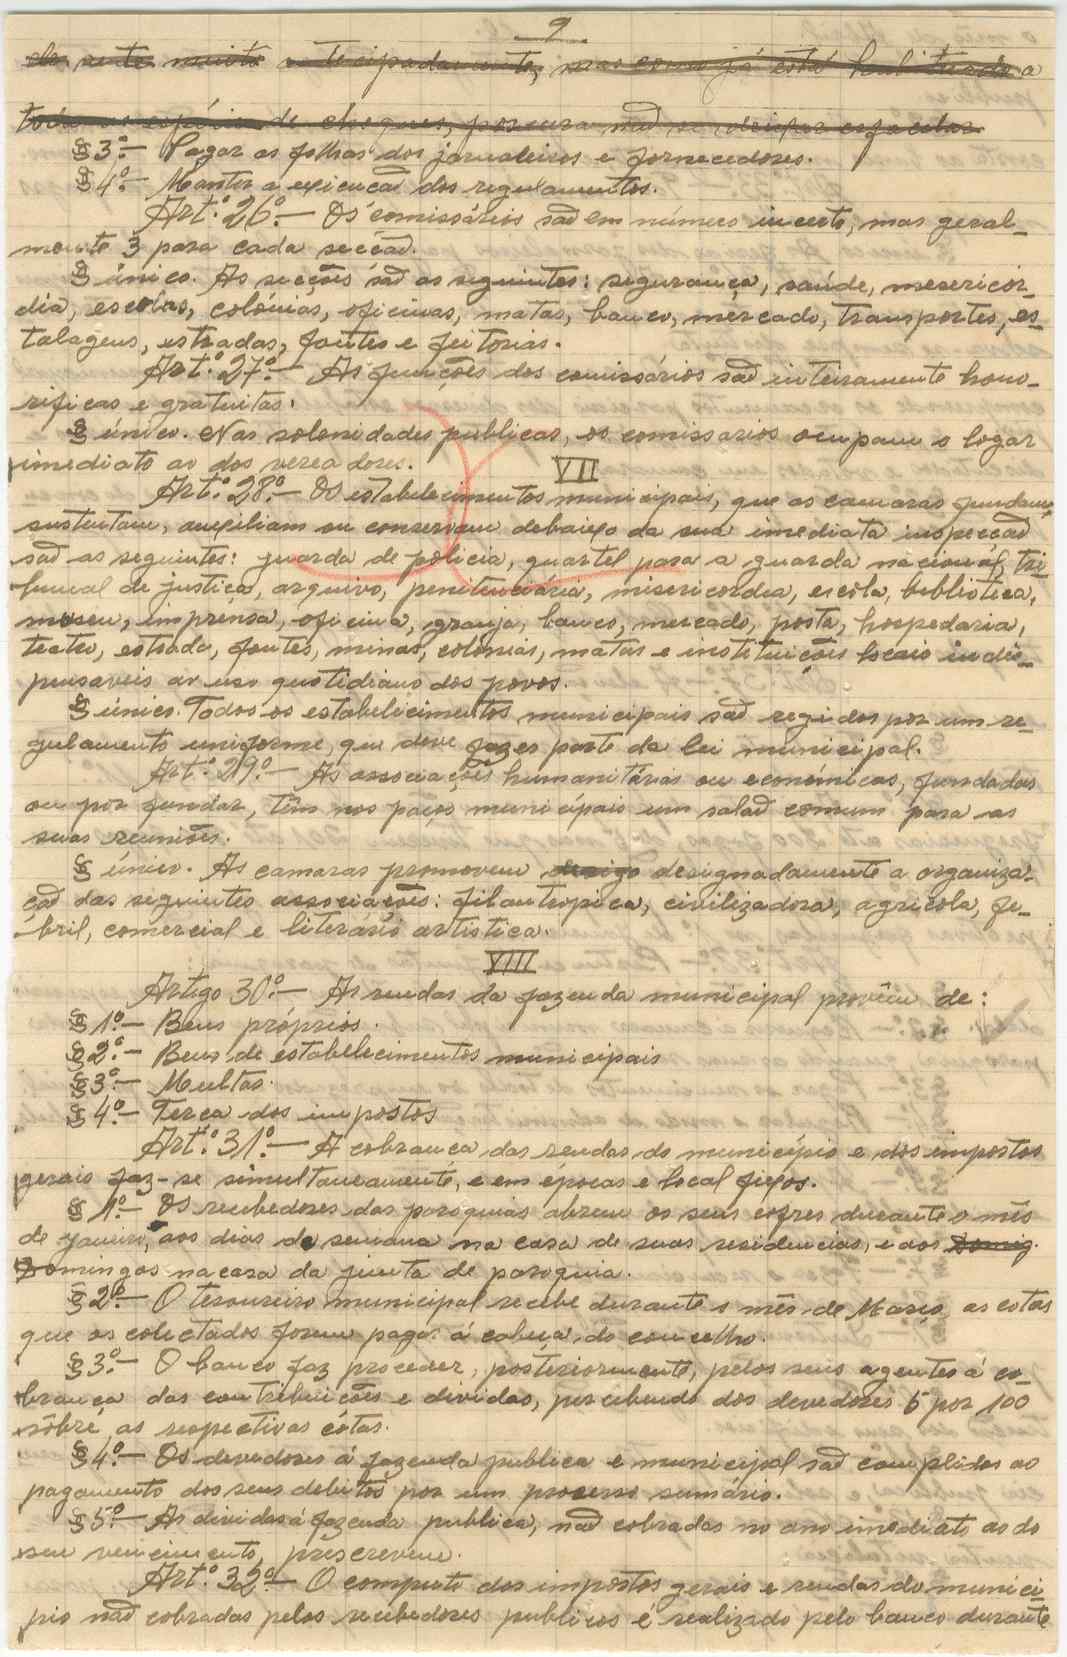 9
do ante muito antecipadamente, mas como já está habituado a
toda a espécie de cheques, procura não se deixar esfacelar
§ 3º.- Pagar as folhas dos jornaleiros e fornecedores.
§ 4º.- Manter a execução dos regulamentos.
Artº. 26º.- Os comissários são em número incerto, mas geral-
mente 3 para cada secção.
§ único. As secções são as seguintes: segurança, saúde, misericor-
dia, escolas, colónias, oficinas, matas, banco, mercado, transportes, es-
talagens, estradas, fontes e feitorias.
Artº. 27º.- As funções dos comissários são inteiramente hono-
rificas e gratuitas.
§ único. Nas solenidades publicas, os comissarios ocupam o logar
imediato ao dos vereadores.
VII
Artº. 28º.- Os estabelecimentos municipais, que as camaras fundam,
sustentam, auxiliam ou conservam debaixo da sua imediata inspecção
são as seguintes: guarda de policia, quartel para a guarda nacional, tri-
bunal de justiça, arquivo, penitenciária, misericordia, escola, biblioteca,
museu, imprensa, oficina, granja, banco, mercado, posta, hospedaria,
teatro, estrada, fontes, minas, colonias, matas e instituições locais indis-
pensaveis ao uso quotidiano dos povos.
§ único. Todos os estabelicimentos municipais são regidos por um re-
gulamento uniforme, que deve fazer parte da lei municipal.
Artº. 29º.- As associações humanitárias ou económicas, fundadas
ou por fundar, têm nos paços municipais um salão comum para as
suas reuniões.
§ único. As camaras promovem designadamente a organiza-
ção das seguintes associações: filantropica, civilizadora, agricola, fe-
bril, comercial e literário artistica.
VIII
Artigo 30º.- As rendas da fazenda municipal provêm de:
§ 1º.- Bens próprios.
§ 2º.- Bens de estabelecimentos municipais
§ 3º.- Multas.
§ 4º.- Terça dos impostos
Artº. 31º.- A cobrança das rendas do município e dos impostos
gerais faz-se simultaneamente, e em épocas e local fixos.
§ 1º.- Os recebedores das paroquias abrem os seus cofres durante o mês
de janeiro, aos dias de semana na casa de suas residencias, e aos Doming
Domingos na casa da junta de paroquia.
§ 2º.- O tesoureiro municipal recebe durante o mês de Março, as cotas
que os colectados forem pagar á cabeça do concelho.
§ 3º.- O banco faz proceder, posteriormente, pelos seus agentes á co-
brança das contribuições e dividas, percebendo dos devedores 5 por 100
sôbre as respectivas cótas.
§ 4º.- Os devedores á fazenda publica e municipal são compelidos ao
pagamento dos seus debitos por um processo sumário.
§ 5º.- As dividas á fazenda publica, não cobradas no ano imediato ao do
seu vencimento, prescrevem.
Artº. 32º.- O computo dos impostos gerais e rendas do municí-
pio não cobradas pelos recebedores publicos é realizado pelo banco durante